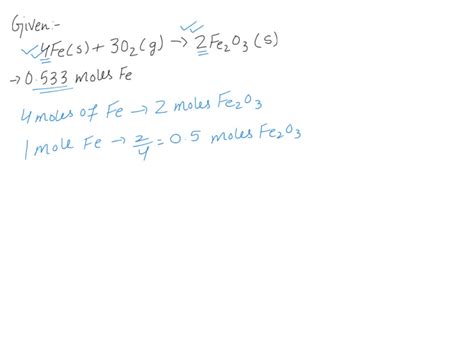 Given:-
4Fe(s) + 3O2(g) → 2Fe2O3(s)
→ 0.533 moles Fe
4 moles of Fe → 2 moles Fe2O3
1 mole Fe → 2/4 = 0.5 moles Fe2O3